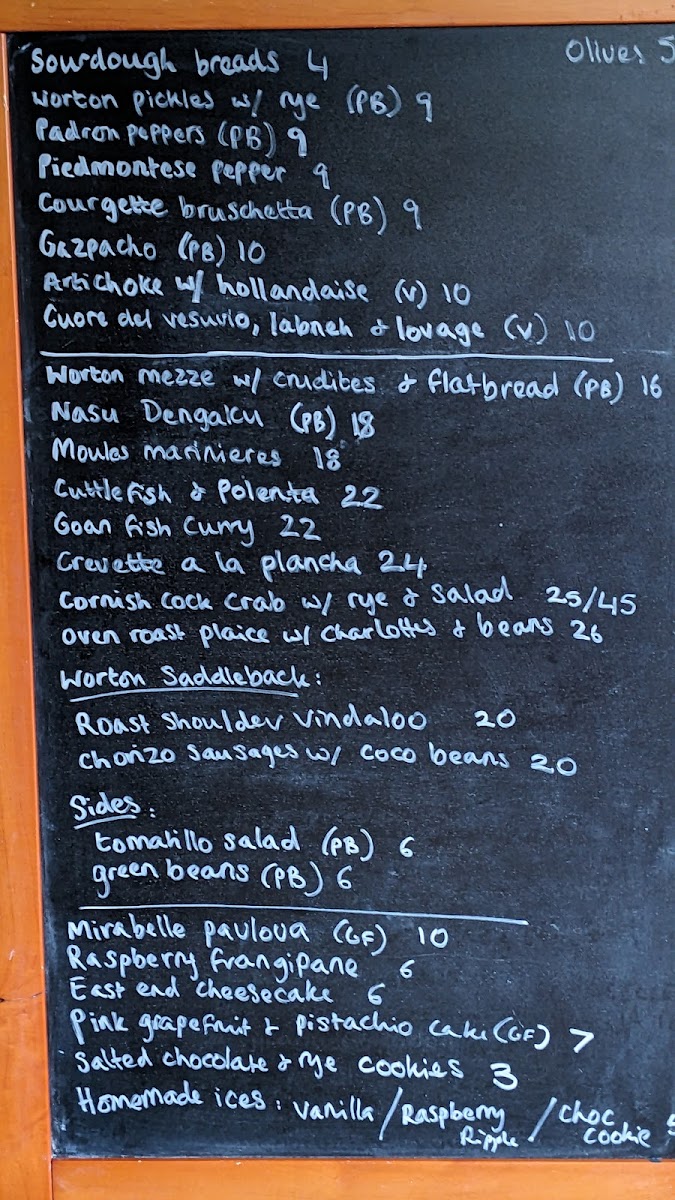 Sourdough breads 4 Olives 5
Worton pickles w/ rye (PB) 9
Padron peppers (PB) 9
Piedmontese pepper 9
Courgette bruschetta (PB) 9
Gazpacho (PB) 10
Artichoke w/ hollandaise (V) 10
Cuore del vesuvio, labneh & lovage (V) 10
Worton mezze w/ crudites & flatbread (PB) 16
Nasu Dengaku (PB) 18
Moules marinieres 18
Cuttlefish & Polenta 22
Goan fish curry 22
Crevette a la plancha 24
Cornish Cock Crab w/ rye & salad 25/45
Oven roast plaice w/ charlottes & beans 26
Worton Saddleback:
Roast shoulder vindaloo 20
Chorizo sausages w/ coco beans 20
Sides:
tomatillo salad (PB) 6
green beans (PB) 6
Mirabelle pavlova (GF) 10
Raspberry frangipane 6
East end cheesecake 6
Pink grapefruit & pistachio cake (GF) 7
Salted chocolate & rye cookies 3
Homemade ices: vanilla / Raspberry Ripple / choc cookie 5